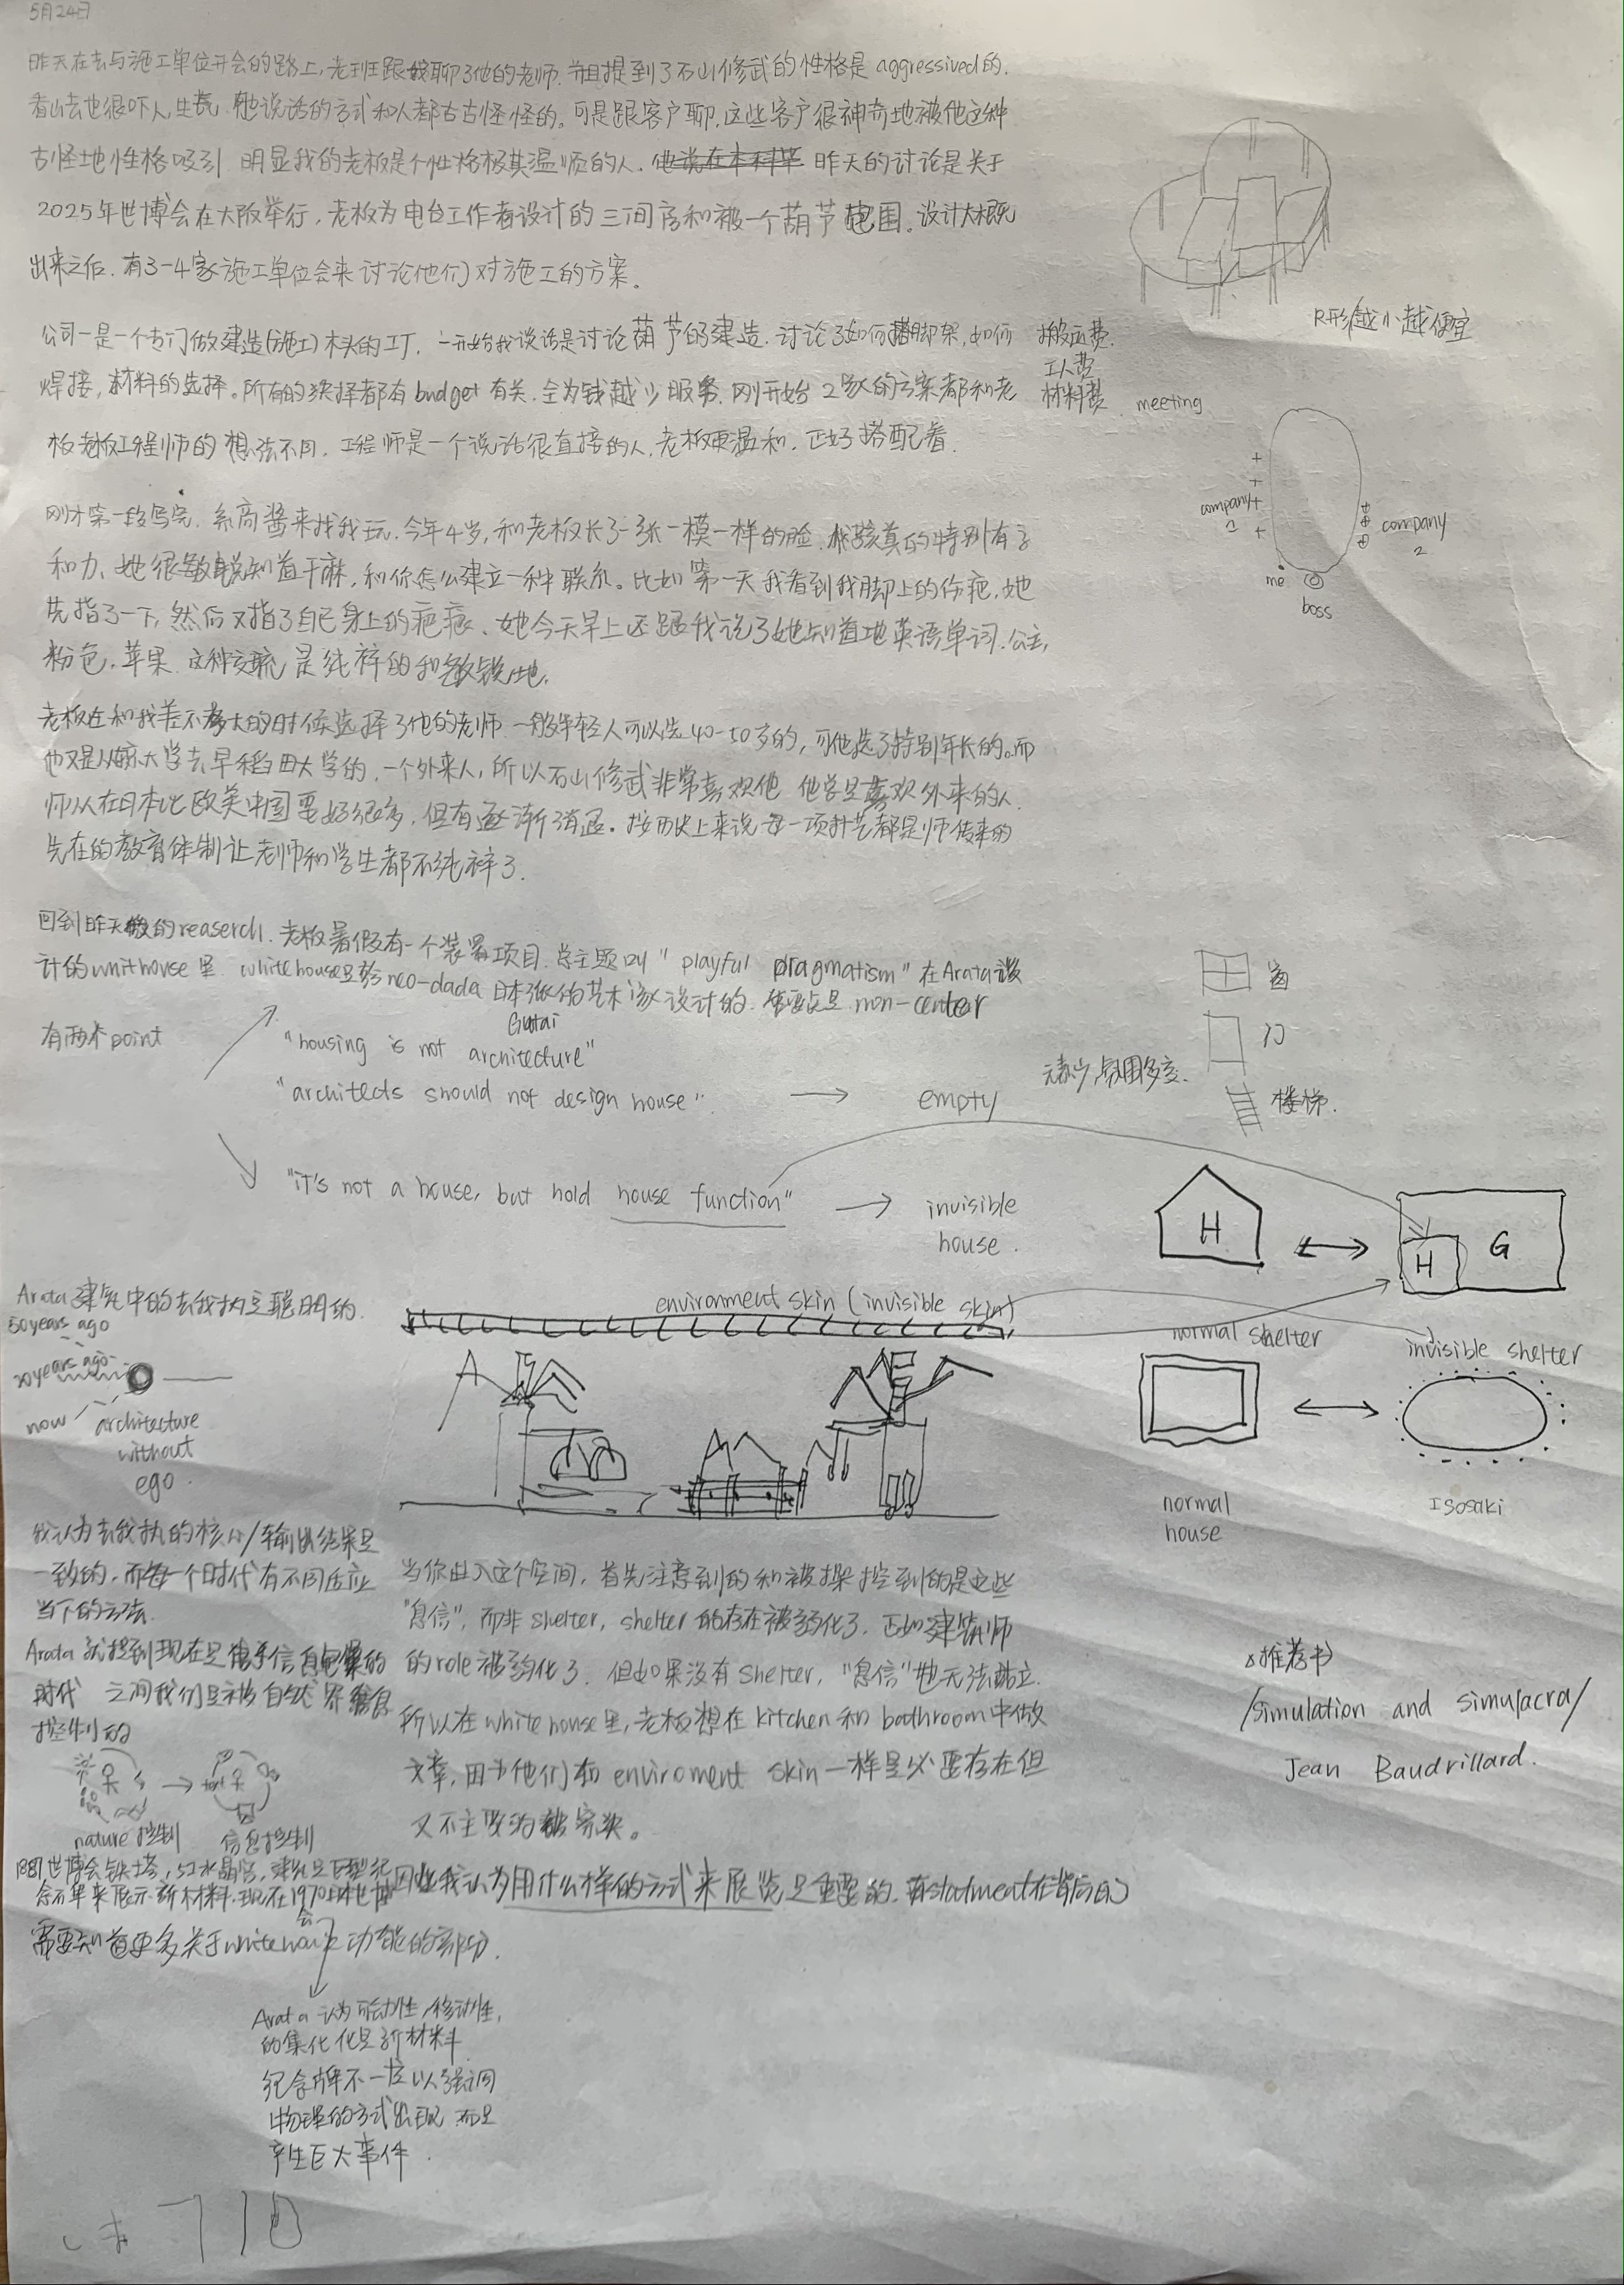 5月24日
昨天在去与施工单位开会的路上,老班跟我聊了他的老师.并且提到了石山修武的性格是aggressived的.
看山去也很吓人,生气.他说话的方式和人都古古怪怪的。可是跟客户聊,这些客户很神奇地被他这种
古怪地性格吸引 明显我的老板是个性格极其温顺的人. 昨天的讨论是关于
2025年世博会在大阪举行,老板为电台工作者设计的三间房和被一个葫芦包围。设计大概
出来之后.有3-4家施工单位会来讨论他们对施工的方案。
R形越小越便宜
公司一是一个专门做建造(施工)木头的工厂.一开始我谈话是讨论葫芦的建造.讨论了如何搭脚架,如何
焊接,材料的选择。所有的决择都有budget有关.全为钱越少服务.刚开始2家的方案都和老
板老板工程师的想法不同.工程师是一个说话很直接的人,老板更温和.正好搭配着.
搬运费.
工人费
材料费
meeting
company
1
company
2
me
boss
刚才第一段写完.系商酱来找我玩.今年4岁,和老板长了一张一模一样的脸.孩真的特别有亲
和力、她很敏锐知道干麻,和你怎么建立一种联系。比如第一天我看到我脚上的伤疤,她
先指了一下,然后又指了自己身上的疤痕、她今天早上还跟我说了她知道地英语单词.公主,
粉色,苹果.这种交流是纯粹的和敏锐地.
老板在和我差不多大的时候选择了他的老师.一般年轻人可以选40-50岁的,可他选了特别年长的。而
他又是从大学去早稻田大学的,一个外来人,所以石山修武非常喜欢他 他总是喜欢外来的人.
师从在日本比欧美中国要好很多,但有逐渐消退。按历史上来说每一项技艺都是师传来的
先在的教育体制让老师和学生都不纯粹了.
回到昨天做的reaserch.老板暑假有一个装置项目.总主题叫"playful pragmatism"在Arata设
计的whithouse里.whitehouse是给neo-dada日本派的艺术家设计的.重要点是non-center
Gutai
有两个point
"housing is not architecture"
"architects should not design house".
empty
元素少,氛围多变.
窗
门
楼梯.
"it's not a house, but hold house function"
invisible
house.
H
H
G
Arata建筑中的去我执是聪明的.
50years ago
20years ago
now
architecture
without
ego.
environment skin (invisible skin)
normal shelter
invisible shelter
normal
house
Isosaki
我认为去我执的核心/输出结果是
一致的,而每一个时代有不同适应
当下的方法.
Arata就提到现在是电子信息包集的
时代 之间我们是被自然界信息
控制的
nature控制
信息控制
1887世博会铁塔,51水晶宫,建筑是巨型纪
念碑年来展示新材料.现在1970日本世博
会
需要知道更多关于whitehouse功能的部分.
Arata认为可动性,移动性,
的集化化是新材料
纪念牌不一定以强调
物理的方式出现 而是
产生巨大事件.
当你进入这个空间,首先注意到的和被操控到的是这些
"息信",而非shelter, shelter的存在被弱化了.正如建筑师
的role被弱化了.但如果没有shelter,"息信"也无法站立.
所以在white house里,老板想在kitchen和bathroom中做
文章,因为他们和enviroment skin一样是必要存在但
又不主要的被定义。
因此我认为用什么样的方式来展览是重要的.有statment在背后的
推荐书
/Simulation and simulacra/
Jean Baudrillard.